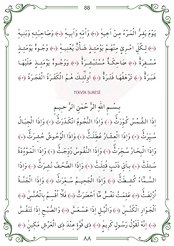 88
يَوْمَ يَفِرُّ الْمَرْءُ مِنْ أَخِيهِ ﴿٣٤﴾ وَأُمِّهِ وَأَبِيهِ ﴿٣٥﴾ وَصَاحِبَتِهِ وَبَنِيهِ
﴿٣٦﴾ لِكُلِّ امْرِئٍ مِنْهُمْ يَوْمَئِذٍ شَأْنٌ يُغْنِيهِ ﴿٣٧﴾ وُجُوهٌ يَوْمَئِذٍ
مُسْفِرَةٌ ﴿٣٨﴾ ضَاحِكَةٌ مُسْتَبْشِرَةٌ ﴿٣٩﴾ وَوُجُوهٌ يَوْمَئِذٍ عَلَيْهَا
غَبَرَةٌ ﴿٤٠﴾ تَرْهَقُهَا قَتَرَةٌ ﴿٤١﴾ أُولَئِكَ هُمُ الْكَفَرَةُ الْفَجَرَةُ ﴿٤٢﴾
TEKVİR SURESİ
بِسْمِ اللهِ الرَّحْمَنِ الرَّحِيمِ
إِذَا الشَّمْسُ كُوِّرَتْ ﴿١﴾ وَإِذَا النُّجُومُ انْكَدَرَتْ ﴿٢﴾ وَإِذَا الْجِبَالُ
سُيِّرَتْ ﴿٣﴾ وَإِذَا الْعِشَارُ عُطِّلَتْ ﴿٤﴾ وَإِذَا الْوُحُوشُ حُشِرَتْ ﴿٥﴾
وَإِذَا الْبِحَارُ سُجِّرَتْ ﴿٦﴾ وَإِذَا النُّفُوسُ زُوِّجَتْ ﴿٧﴾ وَإِذَا الْمَوْءُودَةُ
سُئِلَتْ ﴿٨﴾ بِأَيِّ ذَنْبٍ قُتِلَتْ ﴿٩﴾ وَإِذَا الصُّحُفُ نُشِرَتْ ﴿١٠﴾ وَإِذَا
السَّمَاءُ كُشِطَتْ ﴿١١﴾ وَإِذَا الْجَحِيمُ سُعِّرَتْ ﴿١٢﴾ وَإِذَا الْجَنَّةُ
أُزْلِفَتْ ﴿١٣﴾ عَلِمَتْ نَفْسٌ مَا أَحْضَرَتْ ﴿١٤﴾ فَلَا أُقْسِمُ بِالْخُنَّسِ ﴿١٥﴾
الْجَوَارِ الْكُنَّسِ ﴿١٦﴾ وَاللَّيْلِ إِذَا عَسْعَسَ ﴿١٧﴾ وَالصُّبْحِ إِذَا تَنَفَّسَ
﴿١٨﴾ إِنَّهُ لَقَوْلُ رَسُولٍ كَرِيمٍ ﴿١٩﴾ ذِي قُوَّةٍ عِنْدَ ذِي الْعَرْشِ مَكِينٍ ﴿٢٠﴾
٨٨